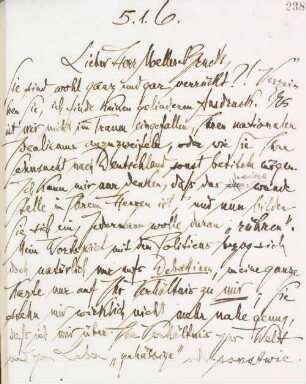 238
5.1.6.
Lieber Herr Moeller-Bruck,
Sie sind wohl ganz und gar verrückt?! Verzeihen
Sie, ich finde keinen gelinderen Ausdruck. Es
ist mir nicht im Traum eingefallen, Ihren nationalen
Idealismus anzuzweifeln, oder wie Sie Ihre
Sehnsucht nach Deutschland sonst betiteln mögen.
Ich kann mir nur denken, daß das eine wunde
Stelle in Ihrem Herzen ist und nun bilden
Sie sich ein, jedermann wolle daran „rühren".
Mein Vergleich mit den bezog sich
doch natürlich nur aufs, meine ganze
nur auf Ihr Verhältnis zu mir! Sie
stehn mir wirklich nicht mehr nahe genug,
daß ich mir über Ihr Verhältnis zur Welt
und zum Leben „gehässige" oder sonstwie